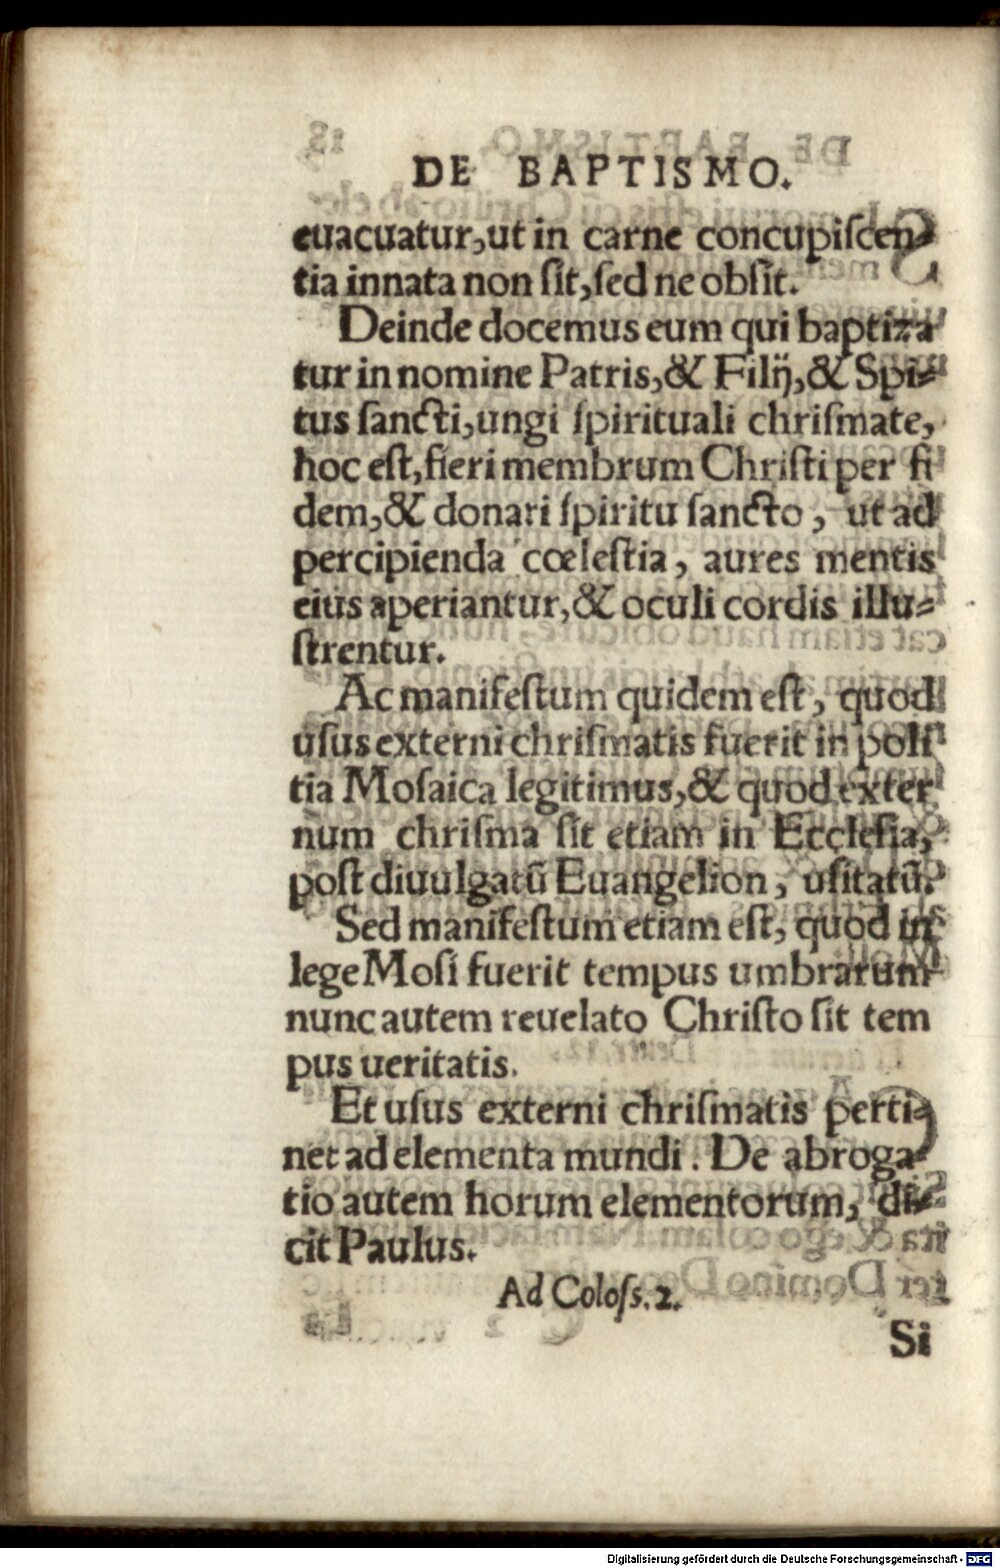 DE BAPTISMO.
euacuatur, ut in carne concupiſcen⸗
tia innata non ſit, ſed ne obſit.
Deinde docemus eum qui baptiza
tur in nomine Patris, & Filij, & Spi⸗
tus ſancti, ungi ſpirituali chriſmate,
hoc eſt, fieri membrum Chriſti per fi
dem, & donari ſpiritu ſancto, ut ad
percipienda cœleſtia, aures mentis
eius aperiantur, & oculi cordis illu⸗
ſtrentur.
Ac manifeſtum quidem eſt, quod
uſus externi chriſmatis fuerit in poli
tia Moſaica legitimus, & quod exter
num chriſma ſit etiam in Eccleſia,
poſt diuulgatũ Euangelion, uſitatũ.
Sed manifeſtum etiam eſt, quod in
lege Moſi fuerit tempus umbrarum
nunc autem reuelato Chriſto ſit tem
pus ueritatis.
Et uſus externi chriſmatis perti⸗
net ad elementa mundi. De abroga⸗
tio autem horum elementorum, di⸗
cit Paulus.
Ad Coloſs. 2.
Si
Digitalisierung gefördert durch die Deutsche Forschungsgemeinschaft - DFG